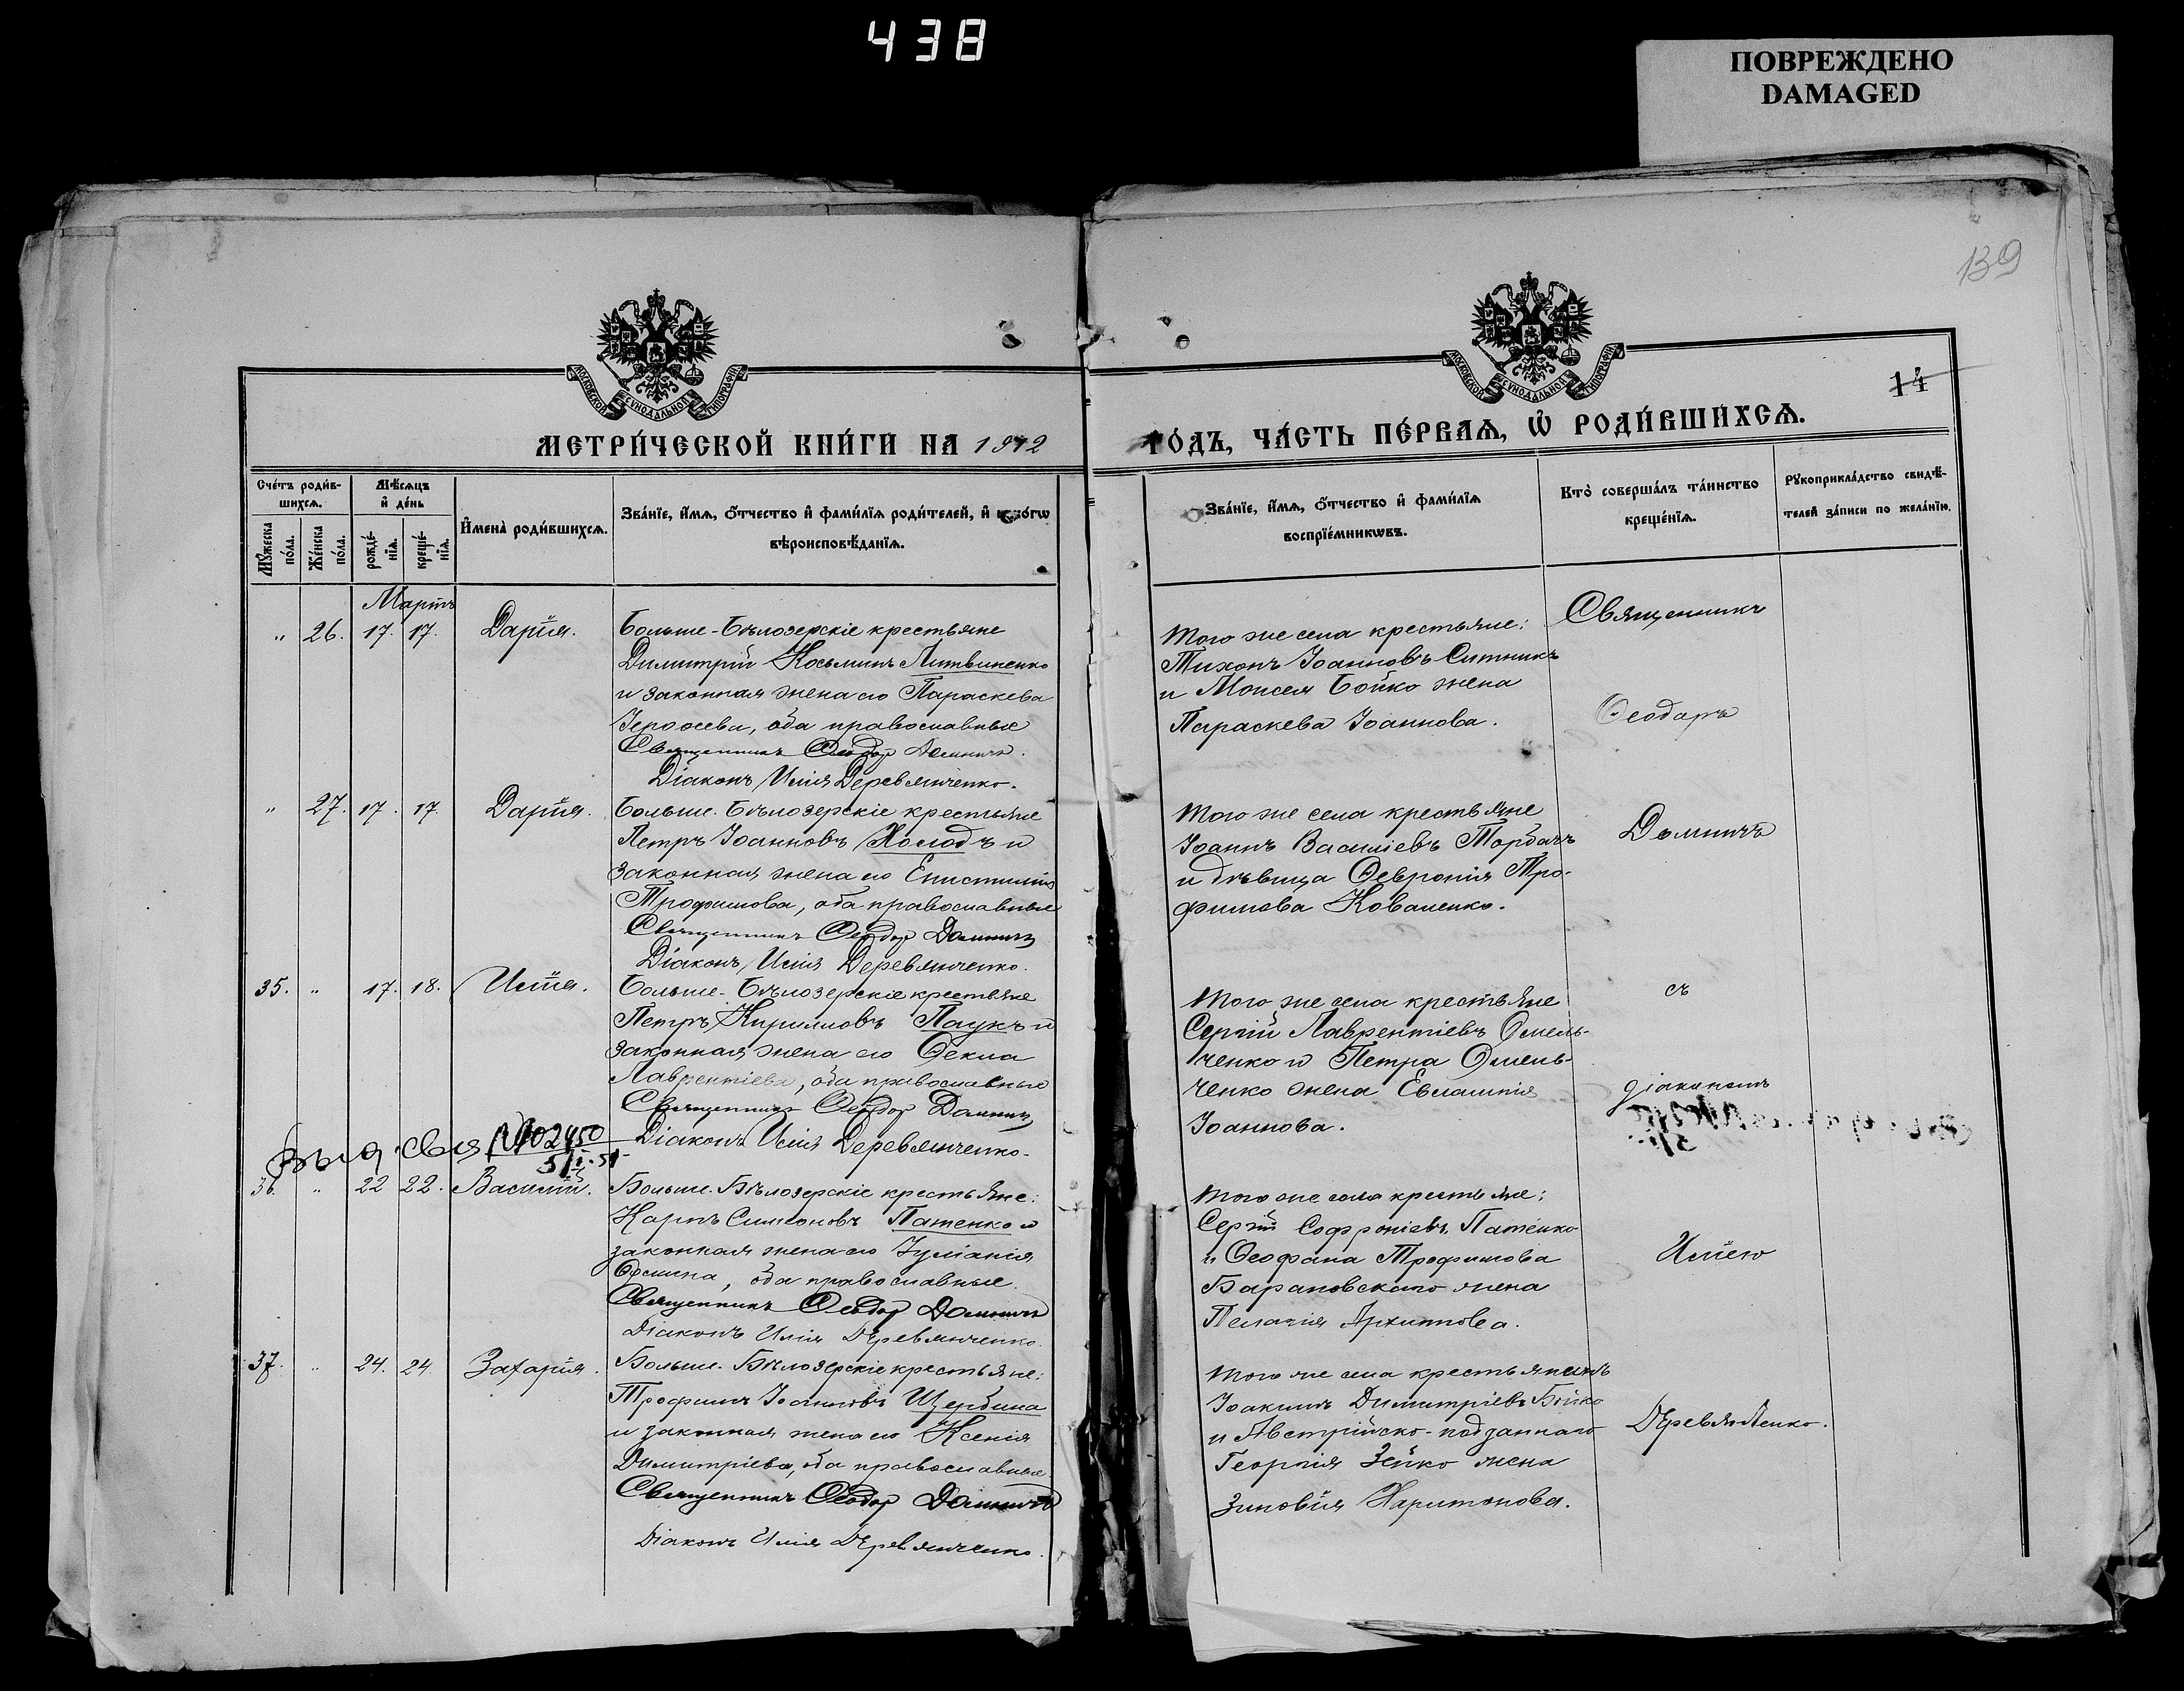 438
ПОВРЕЖДЕНО
DAMAGED
139
МОСКОВСКОЙ СУНОДАЛЬНОЙ ТИПОГРАФІИ
МОСКОВСКОЙ СУНОДАЛЬНОЙ ТИПОГРАФІИ
14
МЕТРИ́ЧЕСКОЙ КНИ́ГИ НА 1912
ГО́ДЪ, ЧА́СТЬ ПЕ́РВАѦ, Ѡ҆ РОДИ́ВШИХСѦ.
Сче́тъ роди́в-
шихсѧ.
Мꙋ́жеска по́ла.
Же́нска по́ла.
Мѣ́сѧцъ
и҆ де́нь
рожде́-
нїѧ.
креще́-
нїѧ.
И҆мена̀ роди́вшихсѧ.
Зва́нїе, и҆́мѧ, ѻ҆́тчество и҆ фами́лїѧ роди́телей, и҆ како́гѡ
вѣроисповѣ́данїѧ.
Зва́нїе, и҆́мѧ, ѻ҆́тчество и҆ фами́лїѧ
воспрїе́мникѡвъ.
Кто̀ соверша́лъ та́инство
креще́нїѧ.
Рꙋкоприкла́дство свидѣ́-
телей за́писи по жела́нїю.
Мартъ
" 26. 17. 17. Дарія.
Больше-Бѣлозерскіе крестьяне
Димитрій Косьминъ Литвиненко
и законная жена его Параскева
Іероѳеева, оба православные
Священникъ Ѳеодор Домничъ.
Діаконъ Илія Деревянченко.
Того же села крестьяне:
Тихонъ Іоанновъ Ситникъ
и Моисея Бойко жена
Параскева Іоаннова.
Священникъ
Ѳеодоръ
" 27. 17. 17. Дарія.
Больше-Бѣлозерскіе крестьяне
Петръ Іоанновъ Холодъ и
законная жена его Епистимія
Трофимова, оба православные
Священникъ Ѳеодор Домничъ
Діаконъ Илія Деревянченко.
Того же села крестьяне
Іоаннъ Василіевъ Торбачъ
и дѣвица Ѳевронія Тро-
фимова Коваленко.
Домничъ
35. " 17. 18. Илія.
Больше-Бѣлозерскіе крестьяне
Петръ Кирилловъ Паукъ и
законная жена его Ѳекла
Лаврентіева, оба православные
Священникъ Ѳеодор Домничъ
Діаконъ Илія Деревянченко.
Того же села крестьяне
Сергій Лаврентіевъ Омель-
ченко и Петра Омель-
ченко жена Евлампія
Іоаннова.
съ
діакономъ
№02450
5/I-51
36. " 22 22. Василій.
Больше-Бѣлозерскіе крестьяне:
Карпъ Симеоновъ Патенко и
законная жена его Іуліанія
оба православные
Священникъ Ѳеодор Домничъ
Діаконъ Илія Деревянченко.
Того же села крестьяне:
Сергій Софроніевъ Патенко
и Ѳеофана Трофимова
Барановскаго жена
Пелагія Архиппова.
Иліею
37. " 24. 24. Захарія.
Больше-Бѣлозерскіе крестьяне:
Трофимъ Іоанновъ Щербина
и законная жена его Ксенія
Димитріева, оба православные
Священникъ Ѳеодор Домничъ
Діаконъ Илія Деревянченко.
Того же села крестьянинъ
Іоакимъ Димитріевъ Бойко
и Австрійско-подданнаго
Георгія Зейко жена
Зиновія Харитонова.
Деревянченко.